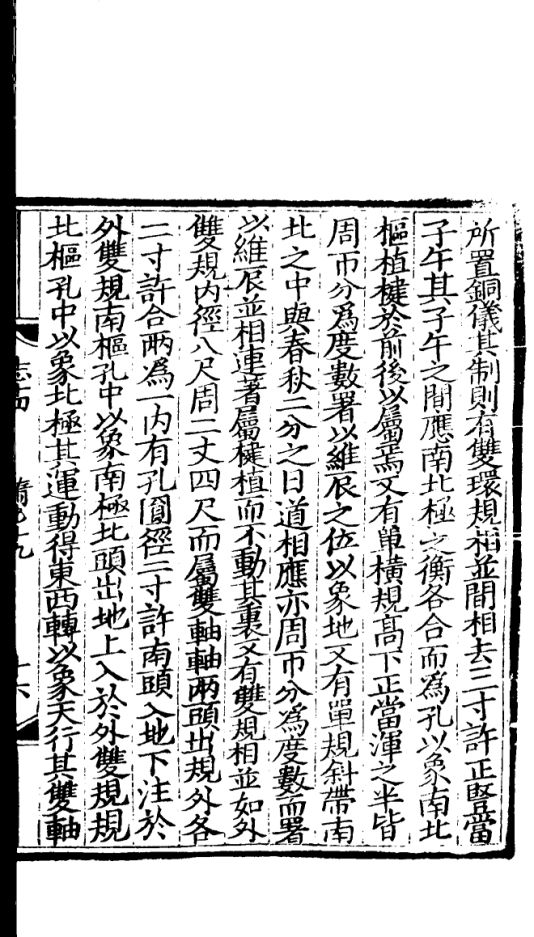 所置銅儀其制則有雙環規相並間相去三寸許正豎當
子午其子午之間應南北極之衡各合而為孔以象南北
樞植楗於前後以屬焉又有單橫規髙下正當渾之半皆
周帀分爲度數署以維辰之位以象地又有單規斜帶南
北之中與春秋二分之日道相應亦周帀分爲度數而署
以維辰並相連著屬楗植而不動其裏又有雙規相並如外
雙規内徑八尺周二丈四尺而屬雙軸軸兩頭出規外各
二寸許合兩爲一内有孔圓徑二寸許南頭入地下注於
外雙規南樞孔中以象南極北頭出地上入於外雙規規
北樞孔中以象北極其運動得東西轉以象天行其雙軸
志十四 隋書十九 十六